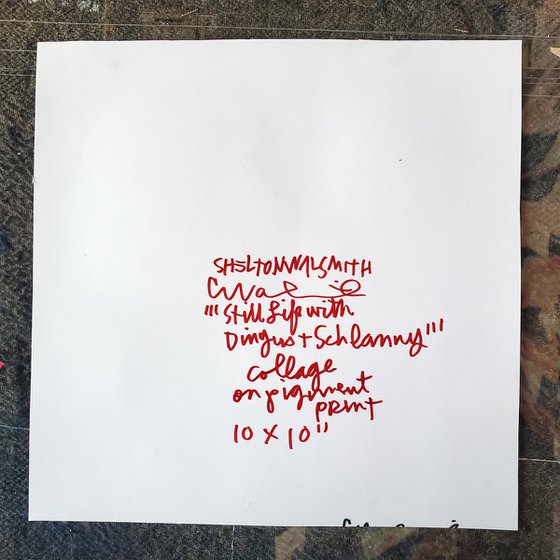 SHELTONWALSMITH
"'Still Life with
Dingus + Schlanny'"
collage
on pigment
print
10 x 10"